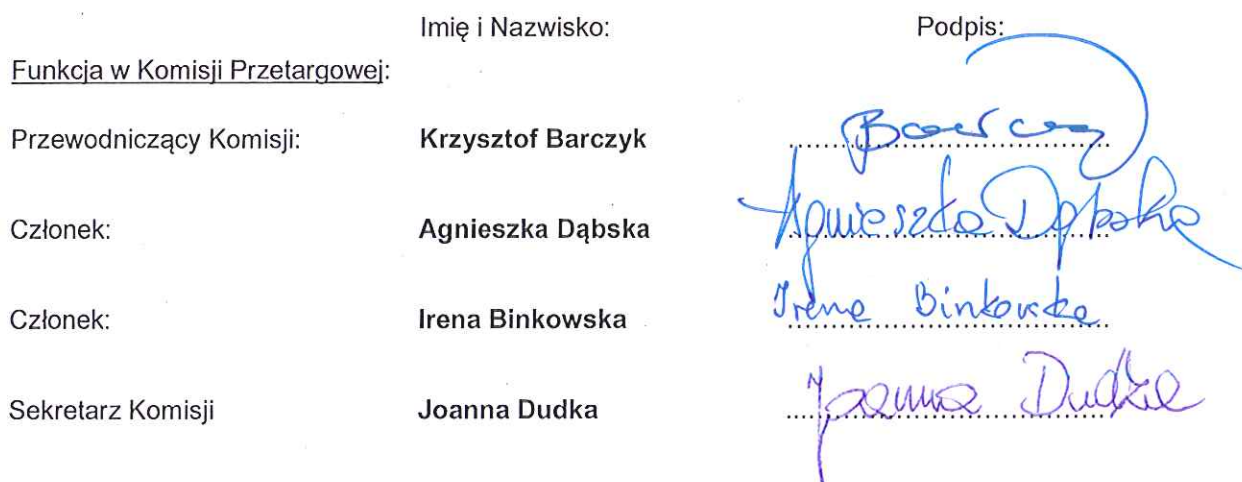 Imię i Nazwisko: Podpis:
Funkcja w Komisji Przetargowej:
Przewodniczący Komisji: Krzysztof Barczyk
Członek: Agnieszka Dąbska Agnieszka Dąbska
Członek: Irena Binkowska Irena Binkowska
Sekretarz Komisji Joanna Dudka Joanna Dudka